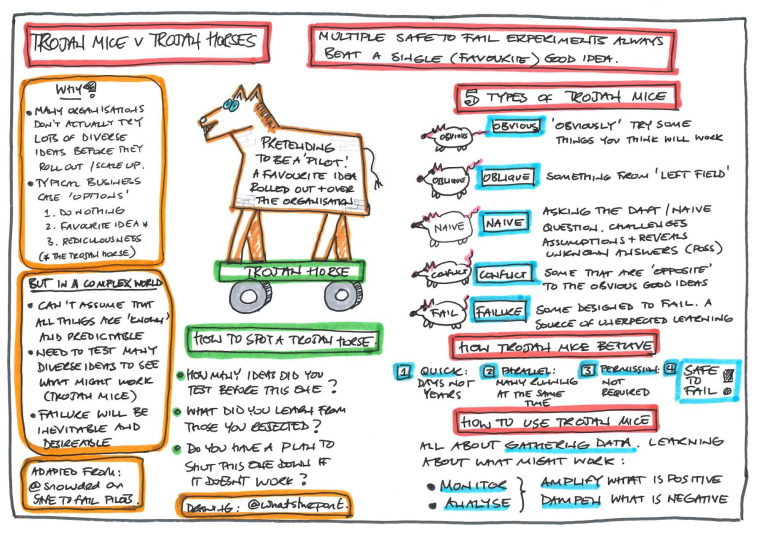 TROJAN MICE V TROJAN HORSES
MULTIPLE SAFE TO FAIL EXPERIMENTS ALWAYS
BEAT A SINGLE (FAVOURITE) GOOD IDEA.
WHY?
• MANY ORGANISATIONS
DON'T ACTUALLY TRY
LOTS OF DIVERSE
IDEAS BEFORE THEY
ROLL OUT / SCALE UP.
• TYPICAL BUSINESS
CASE 'OPTIONS'
1. DO NOTHING
2. FAVOURITE IDEA *
3. REDICULOUSNESS
(* THE TROJAN HORSE)
BUT IN A COMPLEX WORLD
• CAN'T ASSUME THAT
ALL THINGS ARE 'KNOWN'
AND PREDICTABLE
• NEED TO TEST MANY
DIVERSE IDEAS TO SEE
WHAT MIGHT WORK
(TROJAN MICE)
• FAILURE WILL BE
INEVITABLE AND
DESIREABLE
ADAPTED FROM:
@snowded on
SAFE TO FAIL PILOTS.
PRETENDING
TO BE A 'PILOT'.
A FAVOURITE IDEA
ROLLED OUT + OVER
THE ORGANISATION
TROJAN HORSE
HOW TO SPOT A TROJAN HORSE
• HOW MANY IDEAS DID YOU
TEST BEFORE THIS ONE?
• WHAT DID YOU LEARN FROM
THOSE YOU REJECTED?
• DO YOU HAVE A PLAN TO
SHUT THIS ONE DOWN IF
IT DOESN'T WORK?
DRAWING: @whatsthepont.
5 TYPES OF TROJAN MICE
OBVIOUS OBVIOUS 'OBVIOUSLY' TRY SOME
THINGS YOU THINK WILL WORK
OBLIQUE OBLIQUE SOMETHING FROM 'LEFT FIELD'
NAIVE NAIVE ASKING THE DAFT / NAIVE
QUESTION. CHALLENGES
ASSUMPTIONS + REVEALS
UNKNOWN ANSWERS (POSS)
CONFLICT CONFLICT SOME THAT ARE 'OPPOSITE'
TO THE OBVIOUS GOOD IDEAS
FAIL FAILURE SOME DESIGNED TO FAIL. A
SOURCE OF UNEXPECTED LEARNING
HOW TROJAN MICE BEHAVE
1 QUICK: DAYS NOT YEARS
2 PARALLEL: MANY RUNNING AT THE SAME TIME
3 PERMISSION: NOT REQUIRED
4 SAFE TO FAIL!
HOW TO USE TROJAN MICE
ALL ABOUT GATHERING DATA. LEARNING
ABOUT WHAT MIGHT WORK:
• MONITOR } AMPLIFY WHAT IS POSITIVE
• ANALYSE } DAMPEN WHAT IS NEGATIVE